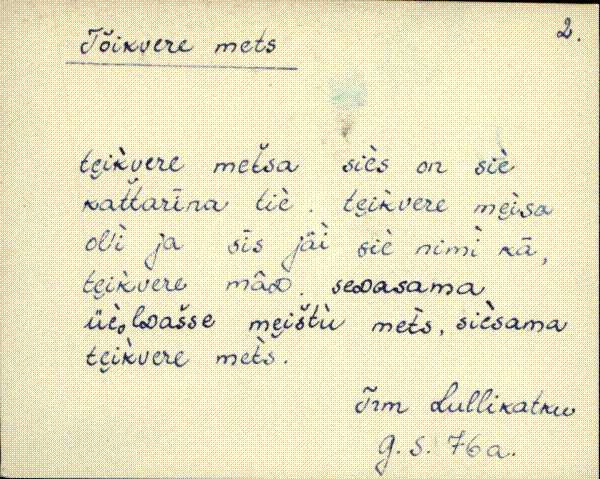 2.
Tõikvere mets
te̮ik̀vere metša siès on siè
kat̆tarīna tiè. te̮ik̀vere me̮isa
oĺ'i ja sīs jäi siè nimì kā,
te̮ik̀vere mâᴅ. seᴅasama
üèlᴅašse me̮ištù met̀s, sièsama
te̮ik̀vere met̀s.
Trm Lullikatku
g. s. 76a.